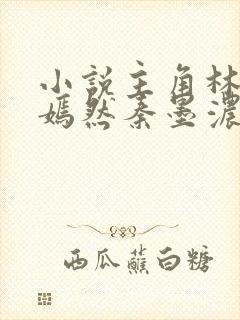 小说主角林
嫣然秦墨濃
西瓜蘸白糖